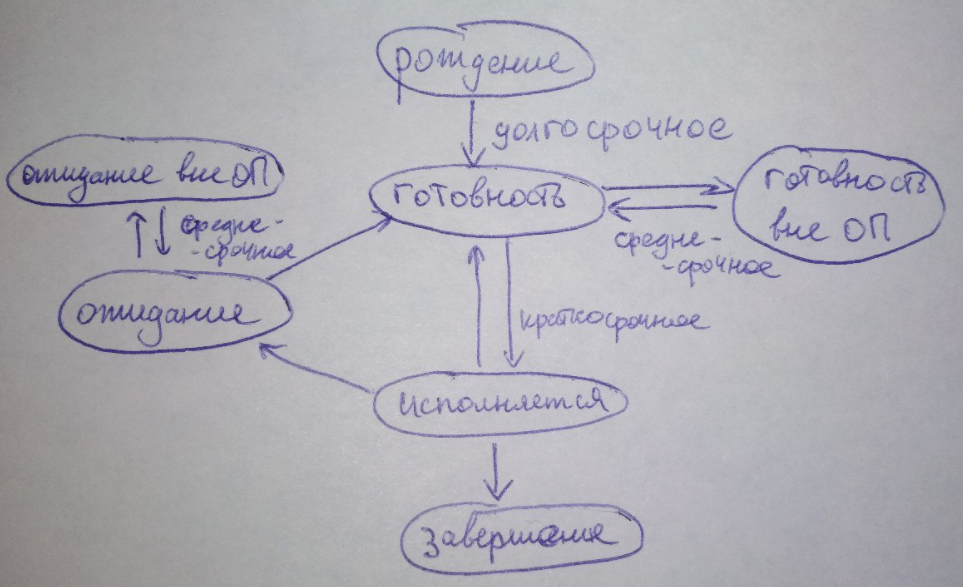 рождение
долгосрочное
ожидание вне ОП
готовность
готовность
вне ОП
средне-
-срочное
средне-
-срочное
ожидание
краткосрочное
исполняется
завершение